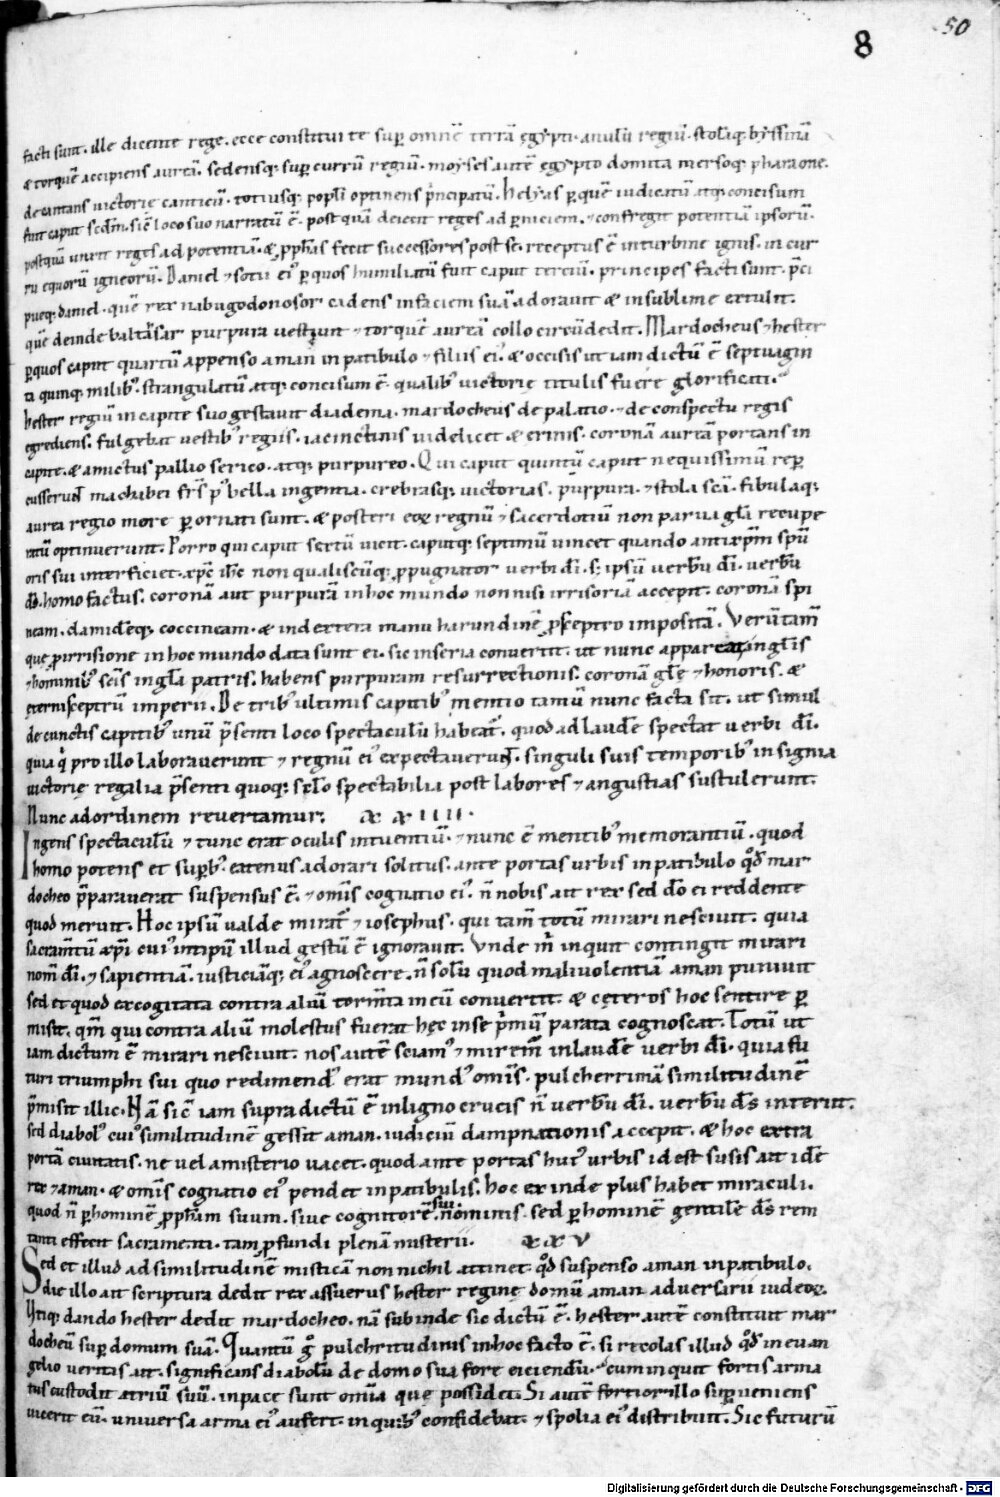 50
8
facti sunt. ille dicente rege. ecce constitui te sup̄ omnē terrā egypti. anulū regiū. stolāq; byssinā
& torquē accipiens aureā. sedensq; sup̄ currū regiū. moyses autē egypto domita mersoq; pharaone.
decantans victorie canticū. totiusq; popłi optinens p̄ncipatū. helyas p̄ quē iudicatū atq; concisum
fuit caput scdm̄. sic̄ loco suo narratū ē. postquā deiecit reges ad p̄niciem. ⁊ confregit potentiā ipsorū.
postquā unxit reges ad potentiā. & pphās fecit successores post se. receptus ē in turbine ignis. in cur
ru equorū igneorū. Daniel ⁊ sotii ei᾽ p̄ quos humiliatū fuit caput terciū. principes facti sunt. p̄ci
pueq; daniel. quē rex nabugodonosor cadens in faciem suā adoravit & in sublime extulit.
quē deinde baltasar purpura vestivit ⁊ torquē aureā collo circūdedit. Mardocheus ⁊ hester
p̄ quos caput quartū appenso aman in patibulo ⁊ filiis ei᾽. & occisis ut iam dictū ē septuagin
ta quinq; milib᾽. strangulatū atq; concisum ē. qualib᾽ victorie titulis fuere glorificati.
hester regiū in capite suo gestavit diadema. mardocheus de palatio. ⁊ de conspectu regis
egrediens. fulgebat vestib᾽ regiis. iacinctinis videlicet & erinis. coronā aureā portans in
capite. & amictus pallio serico. atq; purpureo. Qui caput quintū caput nequissimū rep̄
cusserunt machabei frs̄ p᾽ bella ingentia. crebrasq; victorias. purpura. ⁊ stola scā. fibulaq;
aurea regio more p̄ornati sunt. & posteri eoꝝ regnū ⁊ sacerdotiū non parva głia recupe
ratū optinuerunt. Porro qui caput sextū vicit. caputq; septimū vincet quando antixp̄m spū
oris sui interficiet. xp̄c ihc̄ non qualiscūq; p̄pugnator verbi dī. s; ipsū verbū dī. verbū
ds̄. homo factus. coronā aut purpurā in hoc mundo non nisi irrisoriā accepit. coronā spi
neam. clamideq; coccineam. & in dextera manu harundinē p̄ sceptro impositā. Verūtam̄
que p̄ irrisione in hoc mundo data sunt ei. sic in seria convertit. ut nunc appareat anglis
⁊ hominib᾽ scīs in głia patris. habens purpuram resurrectionis. coronā głe ⁊ honoris. &
eternī sceptrū imperii. De trib᾽ ultimis capitib᾽ mentio tamū nunc facta sit. ut simul
de cunctis capitib᾽ unū p̄senti loco spectaculū habeat᾽. quod ad laudē spectat verbi dī.
quia q̄ pro illo laboraverunt ⁊ regnū ei᾽ expectaverunt. singuli suis temporib᾽ insignia
victorie regalia p̄senti quoq; scło spectabilia post labores ⁊ angustias sustulerunt.
Nunc ad ordinem revertamur. xxIIII.
Ingens spectaculū ⁊ tunc erat oculis intuentiū. ⁊ nunc ē mentib᾽ memorantiū. quod
homo potens et sup̄b᾽. eatenus adorari solitus. ante portas urbis in patibulo qd̄ mar
docheo p̄paraverat suspensus ē. ⁊ omīs cognatio ei᾽. n̄ nobis ait rex sed dō ei reddente
quod meruit. Hoc ipsū valde mirat᾽ ⁊ iosephus. qui tam̄ totū mirari nescivit. quia
sacramtū xp̄i cui᾽ in tipū illud gestū ē ignoravit. Unde m̄ inquit contingit mirari
nom̄ dī. ⁊ sapientiā. iusticiāq; ei᾽ agnoscere. n̄ solū quod malivolentiā aman punivit
sed et quod excogitata contra aliū tormta in eū convertit. & ceteros hoc sentire p̄
misit. qm̄ qui contra aliū molestus fuerat hec in se p̄mū parata cognoscat. Totū ut
iam dictum ē mirari nescivit. nos autē sciam᾽ ⁊ mirem᾽ in laudē verbi dī. quia fu
turi triumphi sui quo redimend᾽ erat mund᾽ omīs. pulcherrimā similitudinē
p̄misit illic. Nā sic̄ iam supradictū ē in ligno crucis n̄ verbū dī. verbū ds̄ interiit.
sed diabol᾽ cui᾽ similitudinē gessit aman. iudiciū dampnationis accepit. & hoc extra
portā civitatis. ne vel a misterio vacet. quod ante portas hui᾽ urbis id est susis ait idē
rex ⁊ aman. & omīs cognatio ei᾽ pendet in patibulis. hoc exinde plus habet miraculi.
quod n̄ p̄ hominē pphām suum. sive cognitorē sui nominis. sed p̄ hominē gentilē ds̄ rem
tanti effecit sacramenti. tam p̄fundi plenā misterii. xxV
Sed et illud ad similitudinē misticā non nichil attinet. qd̄ suspenso aman in patibulo.
die illo ait scriptura dedit rex assuerus hester regine domū aman adversarii iudeoꝝ.
Utiq; dando hester dedit mardocheo. nā subinde sic dictū ē. hester autē constituit mar
docheū sup̄ domum suā. Quantū g᾽ pulchritudinis in hoc facto ē. si recolas illud qd̄ in evan
gelio veritas ait. significans diabolū de domo sua fore eiciendū. cum inquit fortis arma
tus custodit atriū suū. in pace sunt omīa que possidet. Si autē fortior illo sup̄veniens
vicerit eū. universa arma ei᾽ aufert in quib᾽ confidebat. ⁊ spolia ei᾽ distribuit. Sic futurū
Digitalisierung gefördert durch die Deutsche Forschungsgemeinschaft - DFG